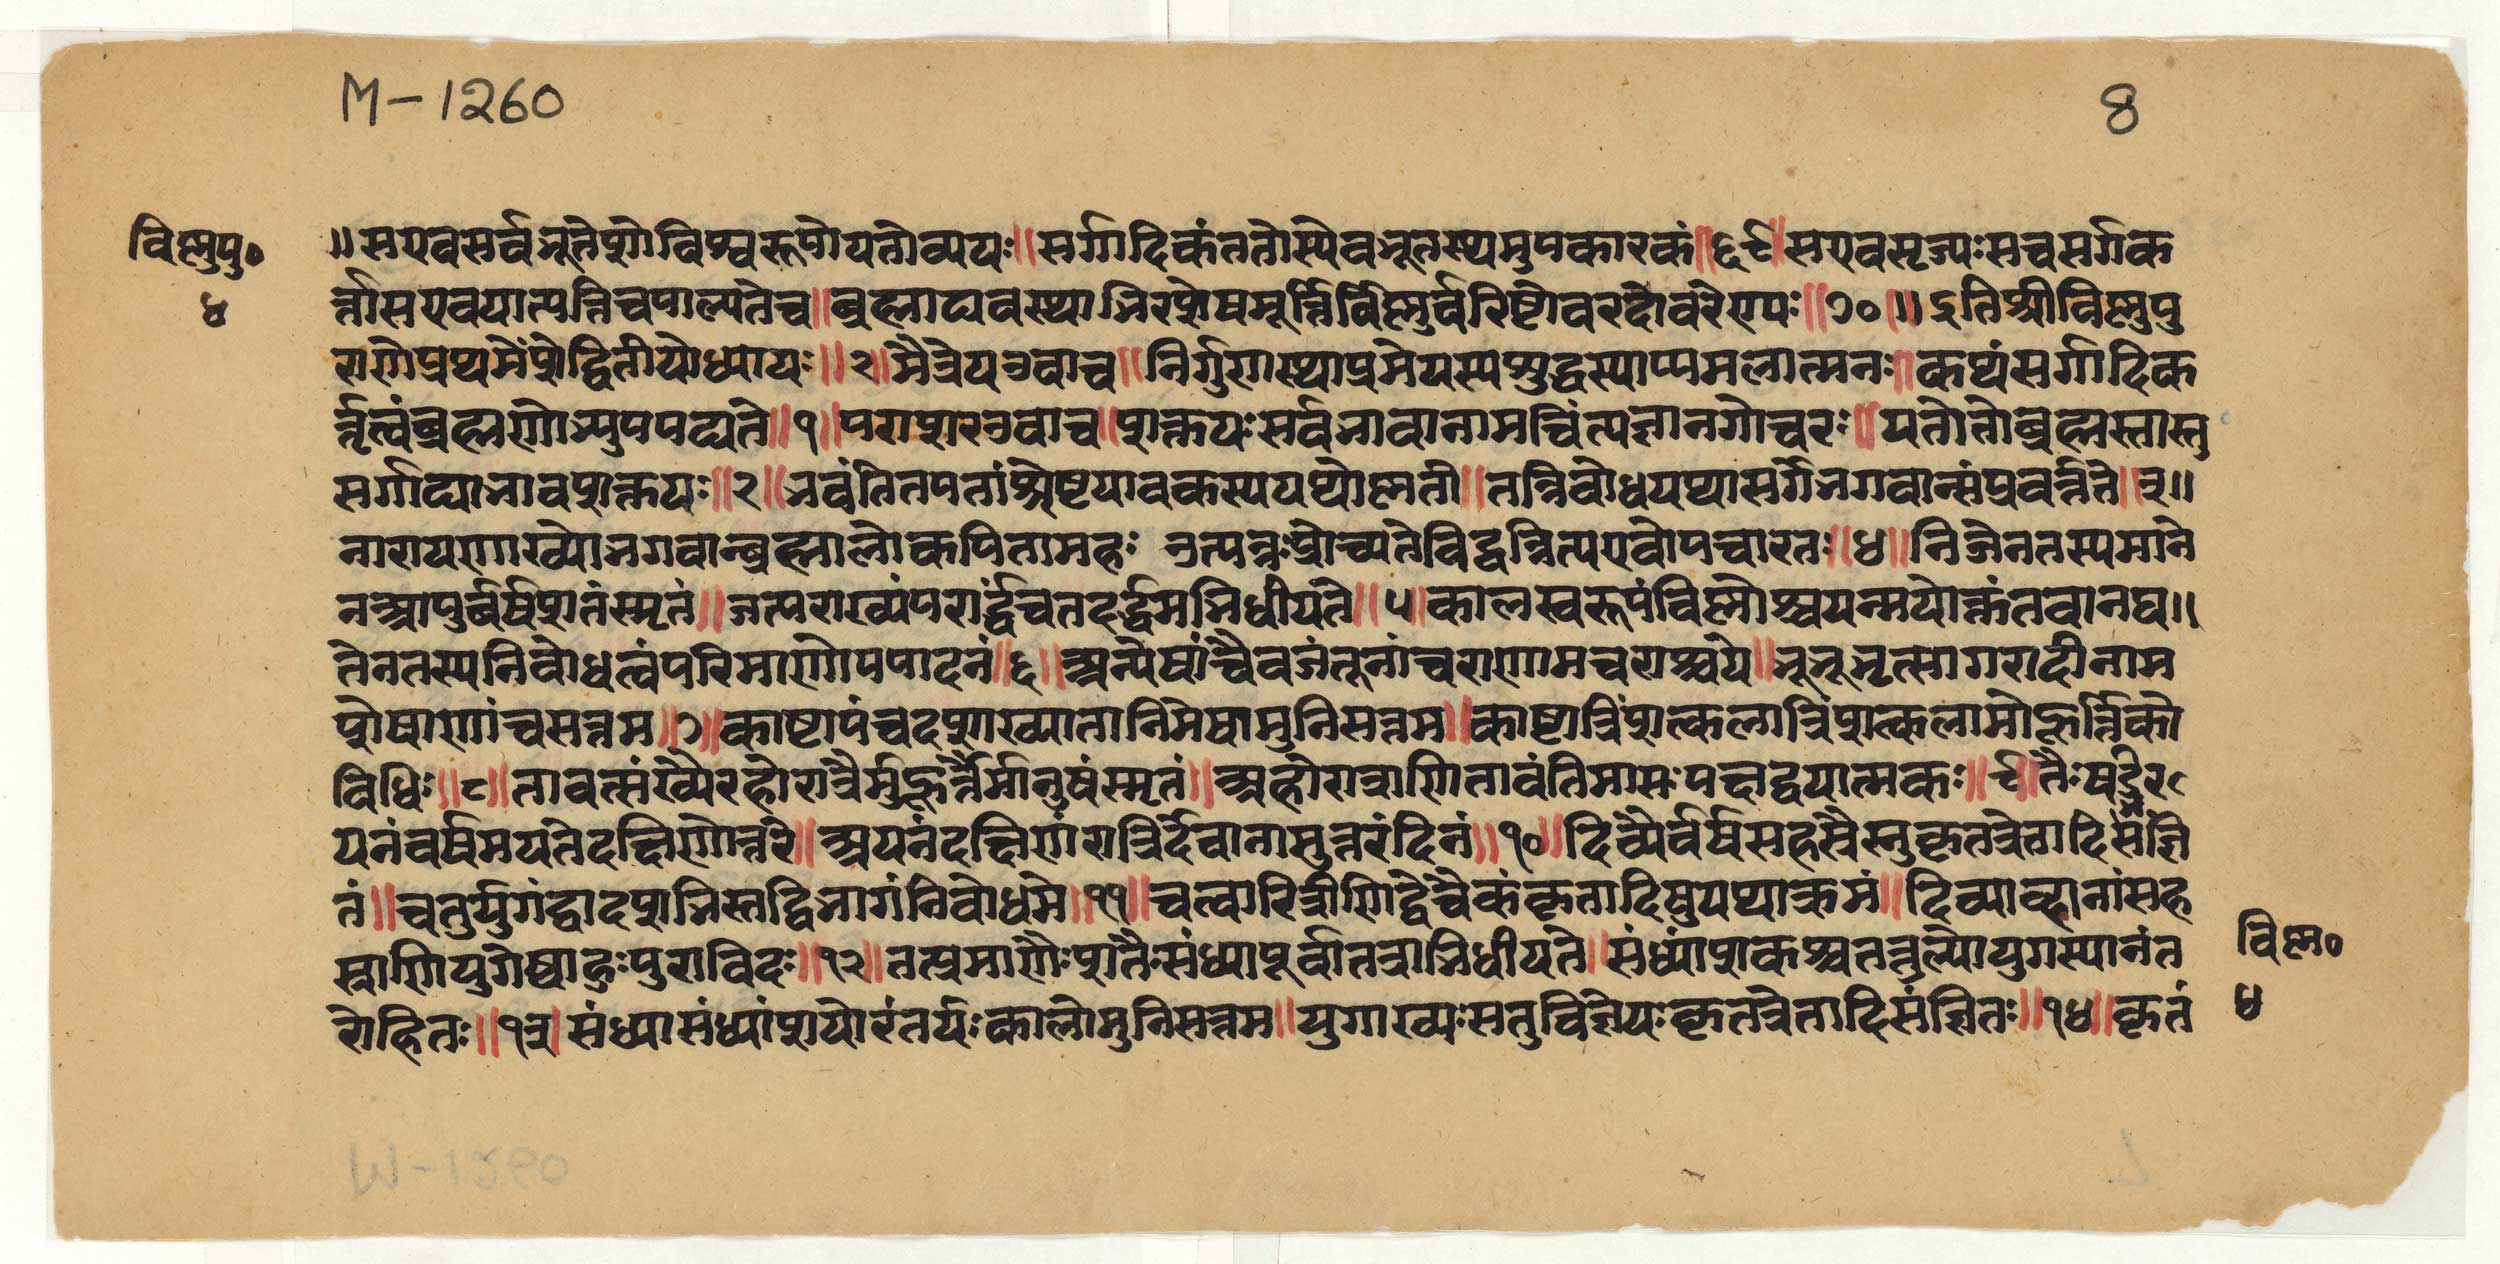 M-1260
8
विष्णुपु०
४
॥सएवसर्वभूतेशोविश्वरूपोयतोव्ययः॥सर्गादिकंततोस्यैवभूतस्थमुपकारकं॥६९॥सएवसृज्यःसचसर्गक
र्त्तासएवपात्यत्तिचपाल्यतेच॥ब्रह्माद्यवस्थाभिरशेषमूर्त्तिर्विष्णुर्वरिष्टोवरदोवरेण्यः॥७०॥॥इतिश्रीविष्णुपु
राणेप्रथमेंशेद्वितीयोध्यायः॥२॥मैत्रेयउवाच॥निर्गुणस्याप्रमेयस्यशुद्धस्याप्यमलात्मनः॥कथंसर्गादिक
र्त्तृत्वंब्रह्मणोभ्युपपद्यते॥१॥पराशरउवाच॥शक्तयःसर्वभावानामचिंत्यज्ञानगोचरः॥यतोतोब्रह्मस्तास्तु
सर्गाद्याभावशक्तयः॥२॥भवंतितपतांश्रेष्टपावकस्ययथोष्णता॥तन्निबोधयथासर्गेभगवान्संप्रवर्त्तते॥३॥
नारायणाख्योभगवान्ब्रह्मालोकपितामहः उत्पन्नःप्रोच्यतेविद्वन्नित्यएवोपचारतः॥४॥निजेनतस्यमाने
नआयुर्बर्षशतंस्मृतं॥जत्पराख्यंपरार्द्धंचतदर्द्धमभिधीयते॥५॥कालस्वरूपंविष्णोश्चयन्मयोक्तंतवानघ॥
तेनतस्यनिबोधत्वंपरिमाणोपपादनं॥६॥अन्येषांचैवजंतूनांचराणामचराश्चये॥भूभूभृत्सागरादीनाम
शेषाणांचसत्तम॥७॥काष्टापंचदशाख्यातानिमेषामुनिसत्तम॥काष्टात्रिंशत्कलात्रिंशत्कलामौहूर्त्तिको
विधिः॥८॥तावत्संख्यैरहोरात्रैर्मुहूर्त्तैर्मानुषंस्मृतं॥अहोरात्राणितावंतिमासःपक्षद्वयात्मकः॥९॥तैःषड्भिर
यनंवर्षमयनेदक्षिणोत्तरे॥अयनंदक्षिणंरात्रिर्देवानामुत्तरंदिनं॥१०॥दिव्यैर्वर्षसहस्रैस्तुकृतत्रेतादिसंज्ञि
तं॥चतुर्युगंद्वादशभिस्तद्विभागंनिबोधमे॥११॥चत्वारित्रीणिद्वेचैकंकृतादिषुयथाक्रमं॥दिव्याब्दानांसह
स्राणियुगेष्वाहुःपुराविदः॥१२॥तत्प्रमाणैःशतैःसंध्यापूर्वातत्राभिधीयते॥संध्यांशकश्चतत्तुल्योयुगस्यानंत
रोहितः॥१३॥संध्यासंध्यांशयोरंतर्यःकालोमुनिसत्तम॥युगाख्यःसतुविज्ञेयःकृतत्रेतादिसंज्ञितः॥१४॥कृतं
विष्ण०
४